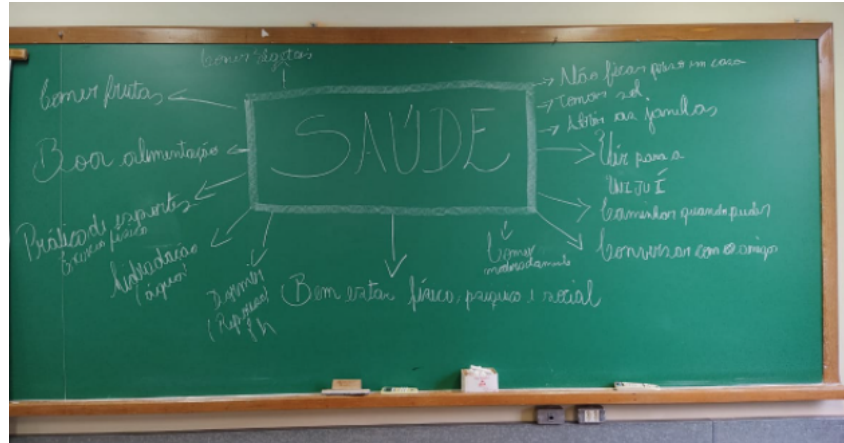 Comer vegetais
Comer frutas
Boa alimentação
Prática de esportes
Exercício físico
hidratação
(água)
Dormir
(Repouso)
8h
SAÚDE
Bem estar físico, psíquico e social
Comer
moderadamente
Não ficar preso em casa
Tomar sol
Abrir as janelas
Vir para a
UNIJUÍ
Caminhar quando puder
Conversar com amigos